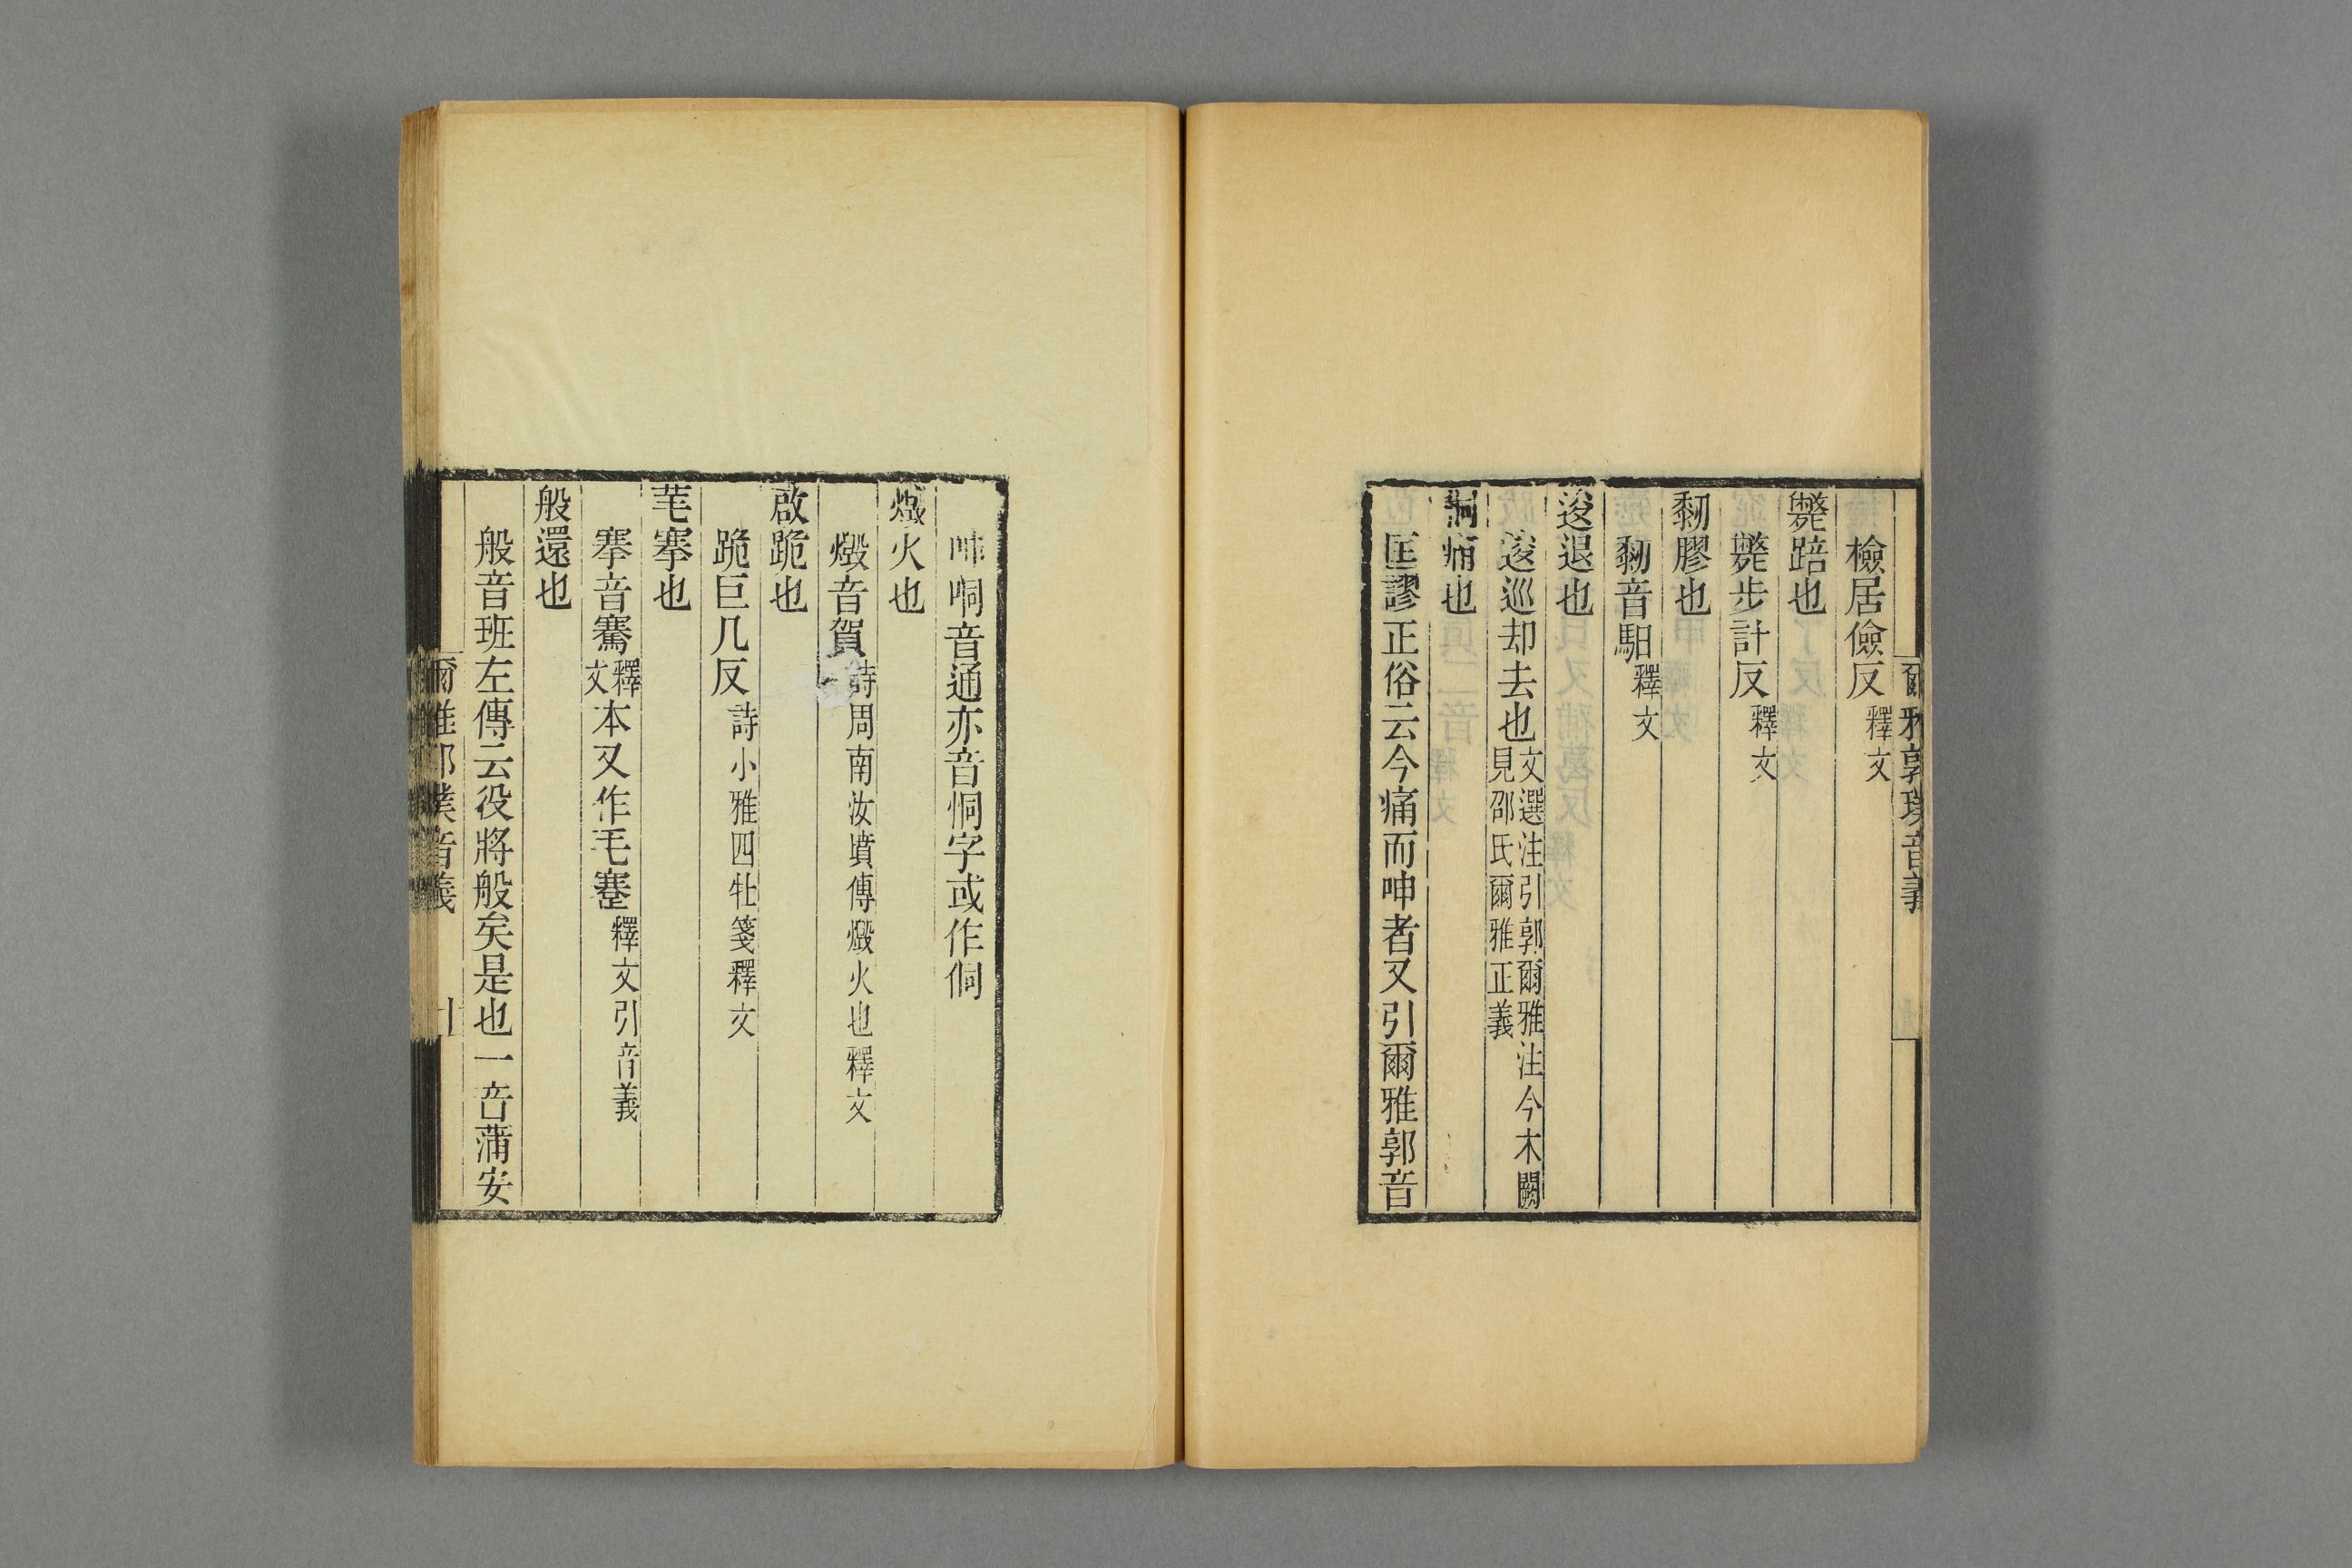 爾雅郭璞音義
檢居儉反釋文
斃踣也
斃步計反釋文
黏膠也
黏音馹釋文
逡退也
逡巡却去也文選注引郭爾雅注今木闕見邵氏爾雅正義
恫痛也
匡謬正俗云今痛而呻者又引爾雅郭音
呻哃音通亦音恫字或作侗
燬火也
燬音賀詩周南汝墳傳燬火也釋文
啟跪也
跪巨几反詩小雅四牡箋釋文
芼搴也
搴音騫釋文本又作毛蹇釋文引音義
般還也
般音班左傳云役將般矣是也一音蒲安
爾雅郭璞音義